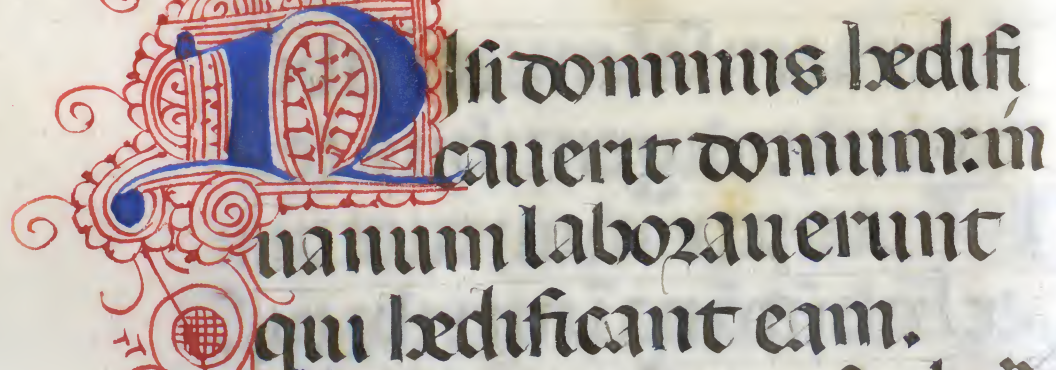 NIsi dominus hedifi
cauerit domum: in
uanum laborauerunt
qui hedificant eam.